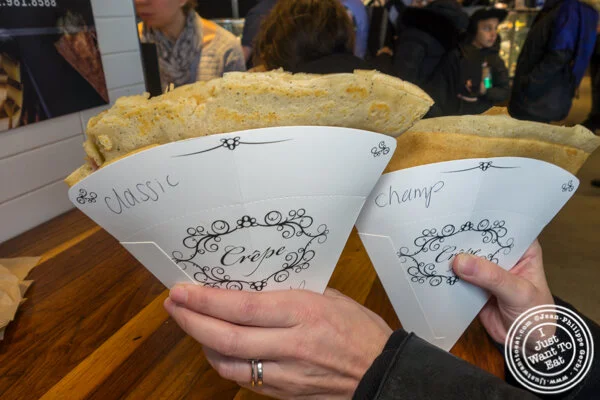 .961.8588
classic
champ
Crêpe
Crêpe
© Jean-Philippe Gerbi
I
Just
Want To
Eat
www.ijustwanttoeat.com